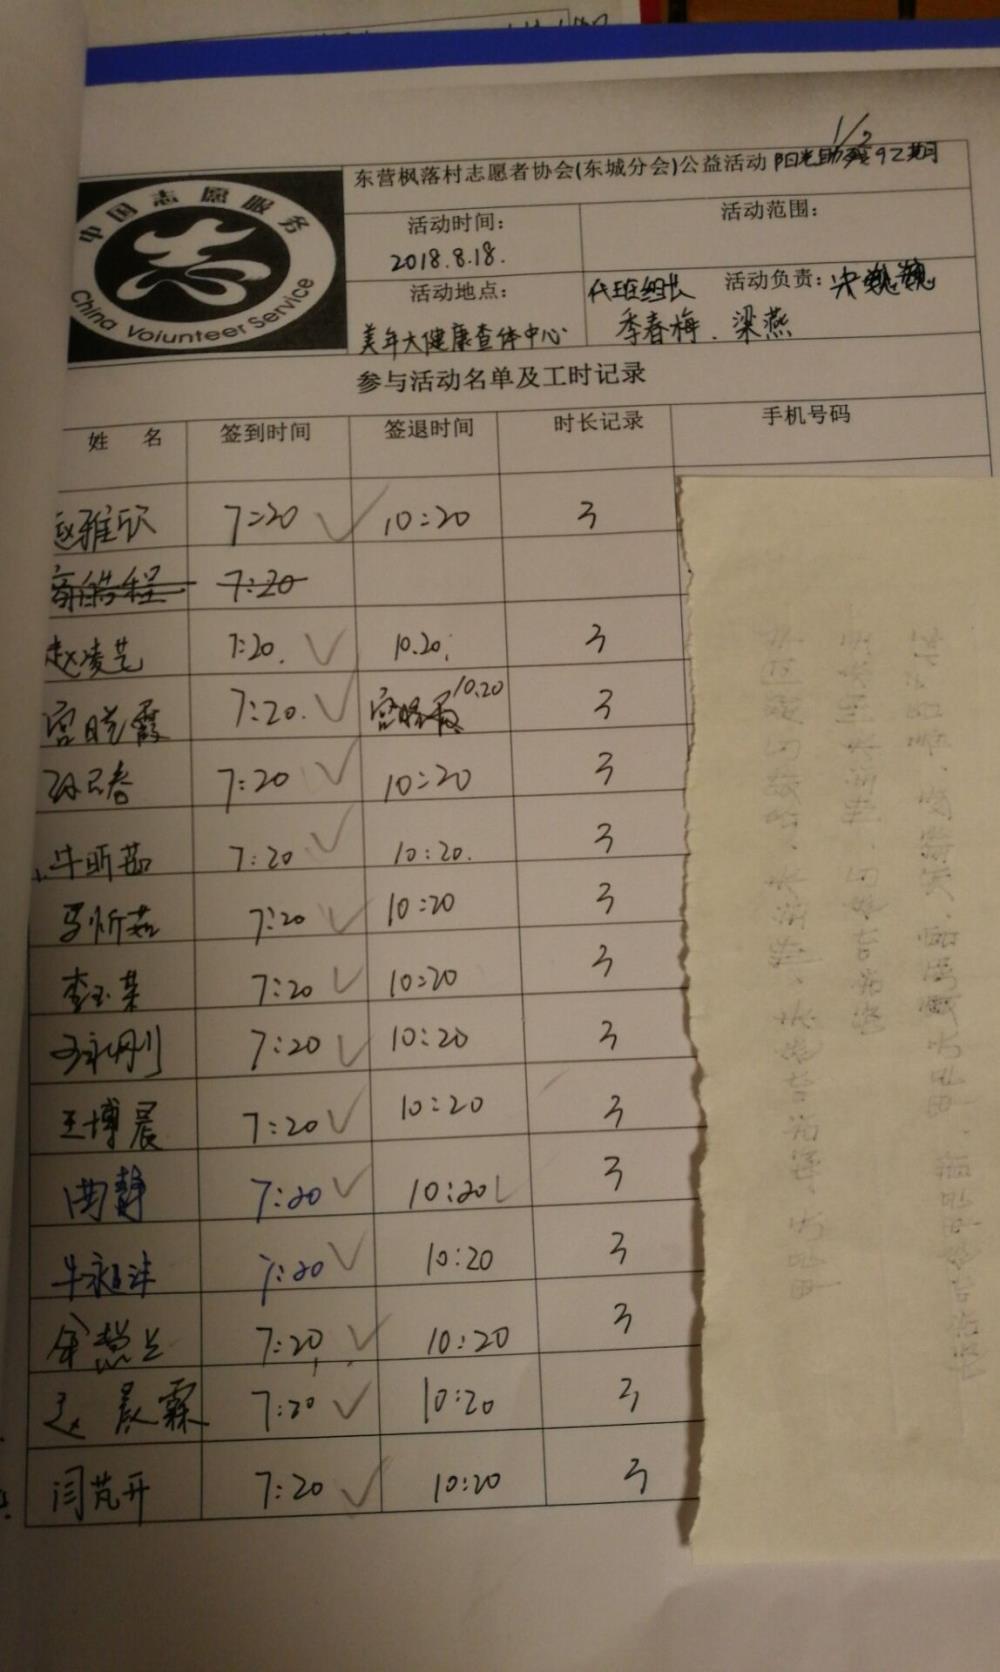 1/2
东营枫落村志愿者协会(东城分会)公益活动 阳光助残
中国志愿服务
China Voiunteer Service
活动时间：
2018.8.18.
活动范围：
活动地点：
美年大健康查体中心
代班组长 活动负责：宋巍巍
季春梅．梁燕
参与活动名单及工时记录
姓 名 签到时间 签退时间 时长记录 手机号码
赵雅欣 7:20 10:20 3
7:20
赵凌艺 7:20. 10.20. 3
宫晓霞 7:20. 宫晓霞 10.20 3
7:20 10:20 3
牛昕茹 7:20 10:20. 3
马忻茹 7:20 10:20 3
李玉荣 7:20 10:20 3
王永刚 7:20 10:20 3
王博晨 7:20 10:20 3
曲静 7:20 10:20 3
7:20 10:20 3
7:20 10:20 3
赵晨霖 7:20 10:20 3
闫芃开 7:20 10:20 3